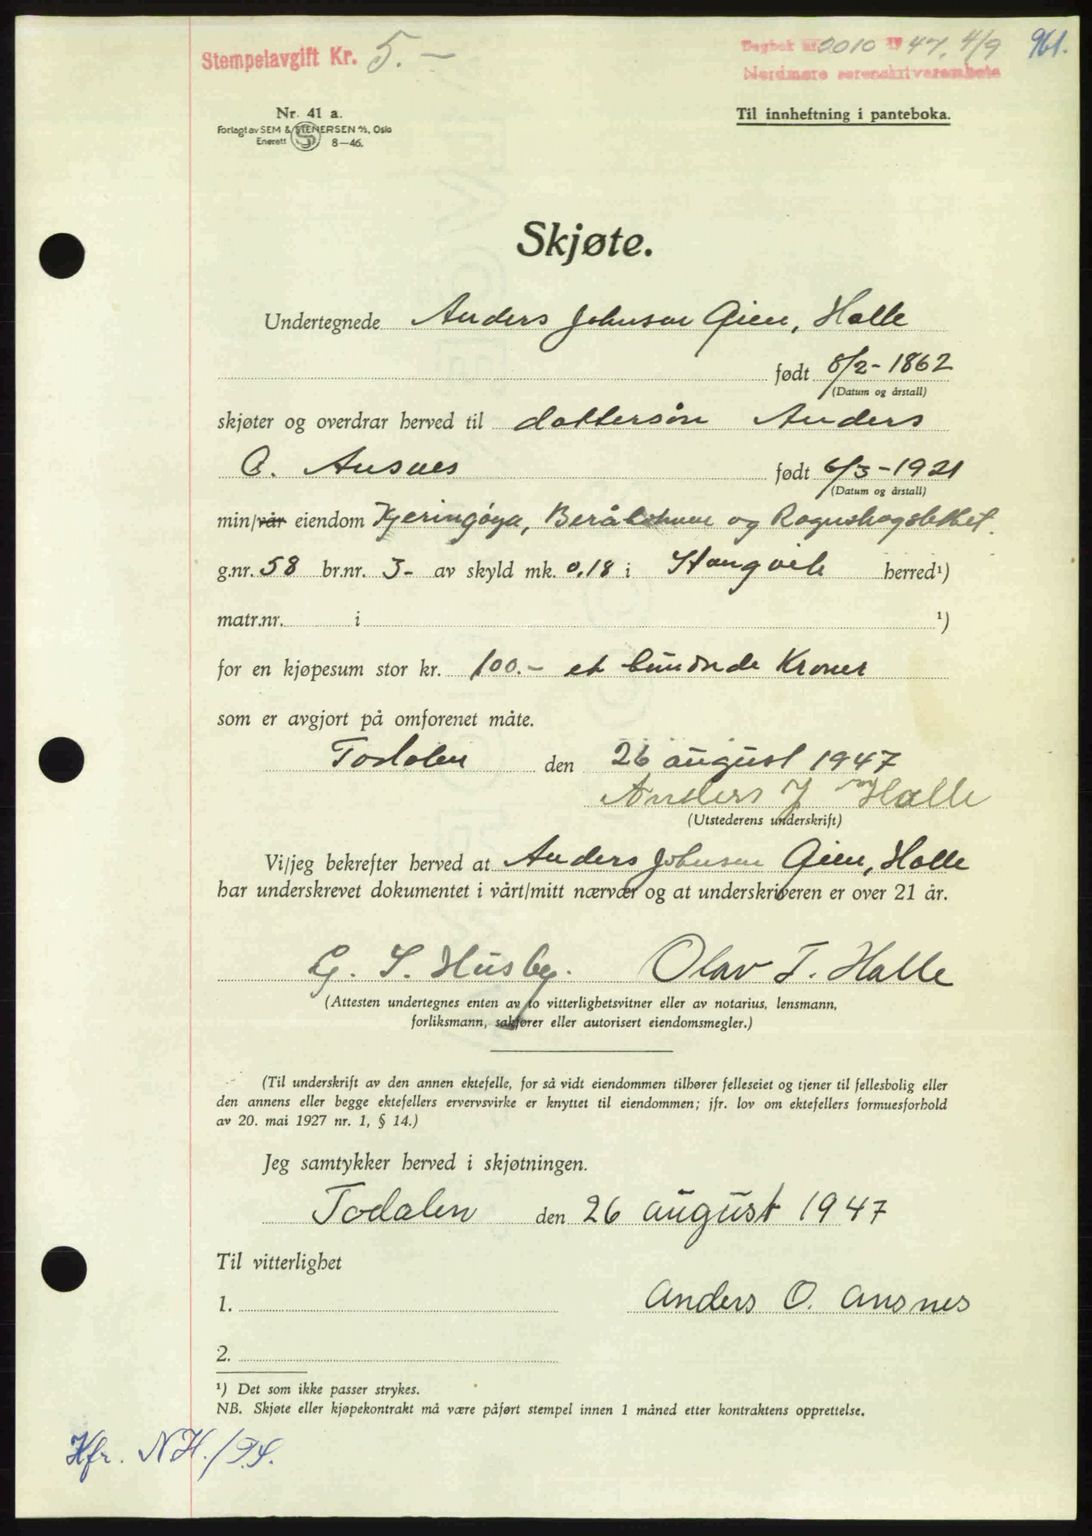 Stempelavgift Kr. 5.—
Dagbok nr. 2010 1947, 4/9 961.
Nordmøre sorenskriverembete
Nr. 41 a.
Forlagt av SEM & STENERSEN A/S, Oslo
Enerett S 8—46.
Til innheftning i panteboka.
Skjøte.
Undertegnede Anders Johnsen Gien, Halle
født 8/2-1862
(Datum og årstall)
skjøter og overdrar herved til dattersøn Anders
O. Ansnes født 6/3-1921
(Datum og årstall)
min/vår eiendom Kjeringøya, og Rognehogslettet.
g.nr. 58 br.nr. 3- av skyld mk. 0.18 i Stangvik herred¹)
matr.nr. i ¹)
for en kjøpesum stor kr. 100.- et hundrede Kroner
som er avgjort på omforenet måte.
Todalen den 26 august 1947
Anders J Halle
(Utstederens underskrift)
Vi/jeg bekrefter herved at Anders Johnsen Gien, Halle
har underskrevet dokumentet i vårt/mitt nærvær og at underskriveren er over 21 år.
G. S. Husby. Olav T. Halle
(Attesten undertegnes enten av to vitterlighetsvitner eller av notarius, lensmann,
forliksmann, sakfører eller autorisert eiendomsmegler.)
(Til underskrift av den annen ektefelle, for så vidt eiendommen tilhører felleseiet og tjener til fellesbolig eller
den annens eller begge ektefellers ervervsvirke er knyttet til eiendommen; jfr. lov om ektefellers formuesforhold
av 20. mai 1927 nr. 1, § 14.)
Jeg samtykker herved i skjøtningen.
Todalen den 26 august 1947
Til vitterlighet
1. Anders O. Ansnes
2.
¹) Det som ikke passer strykes.
NB. Skjøte eller kjøpekontrakt må være påført stempel innen 1 måned etter kontraktens opprettelse.
Kfr. NH./